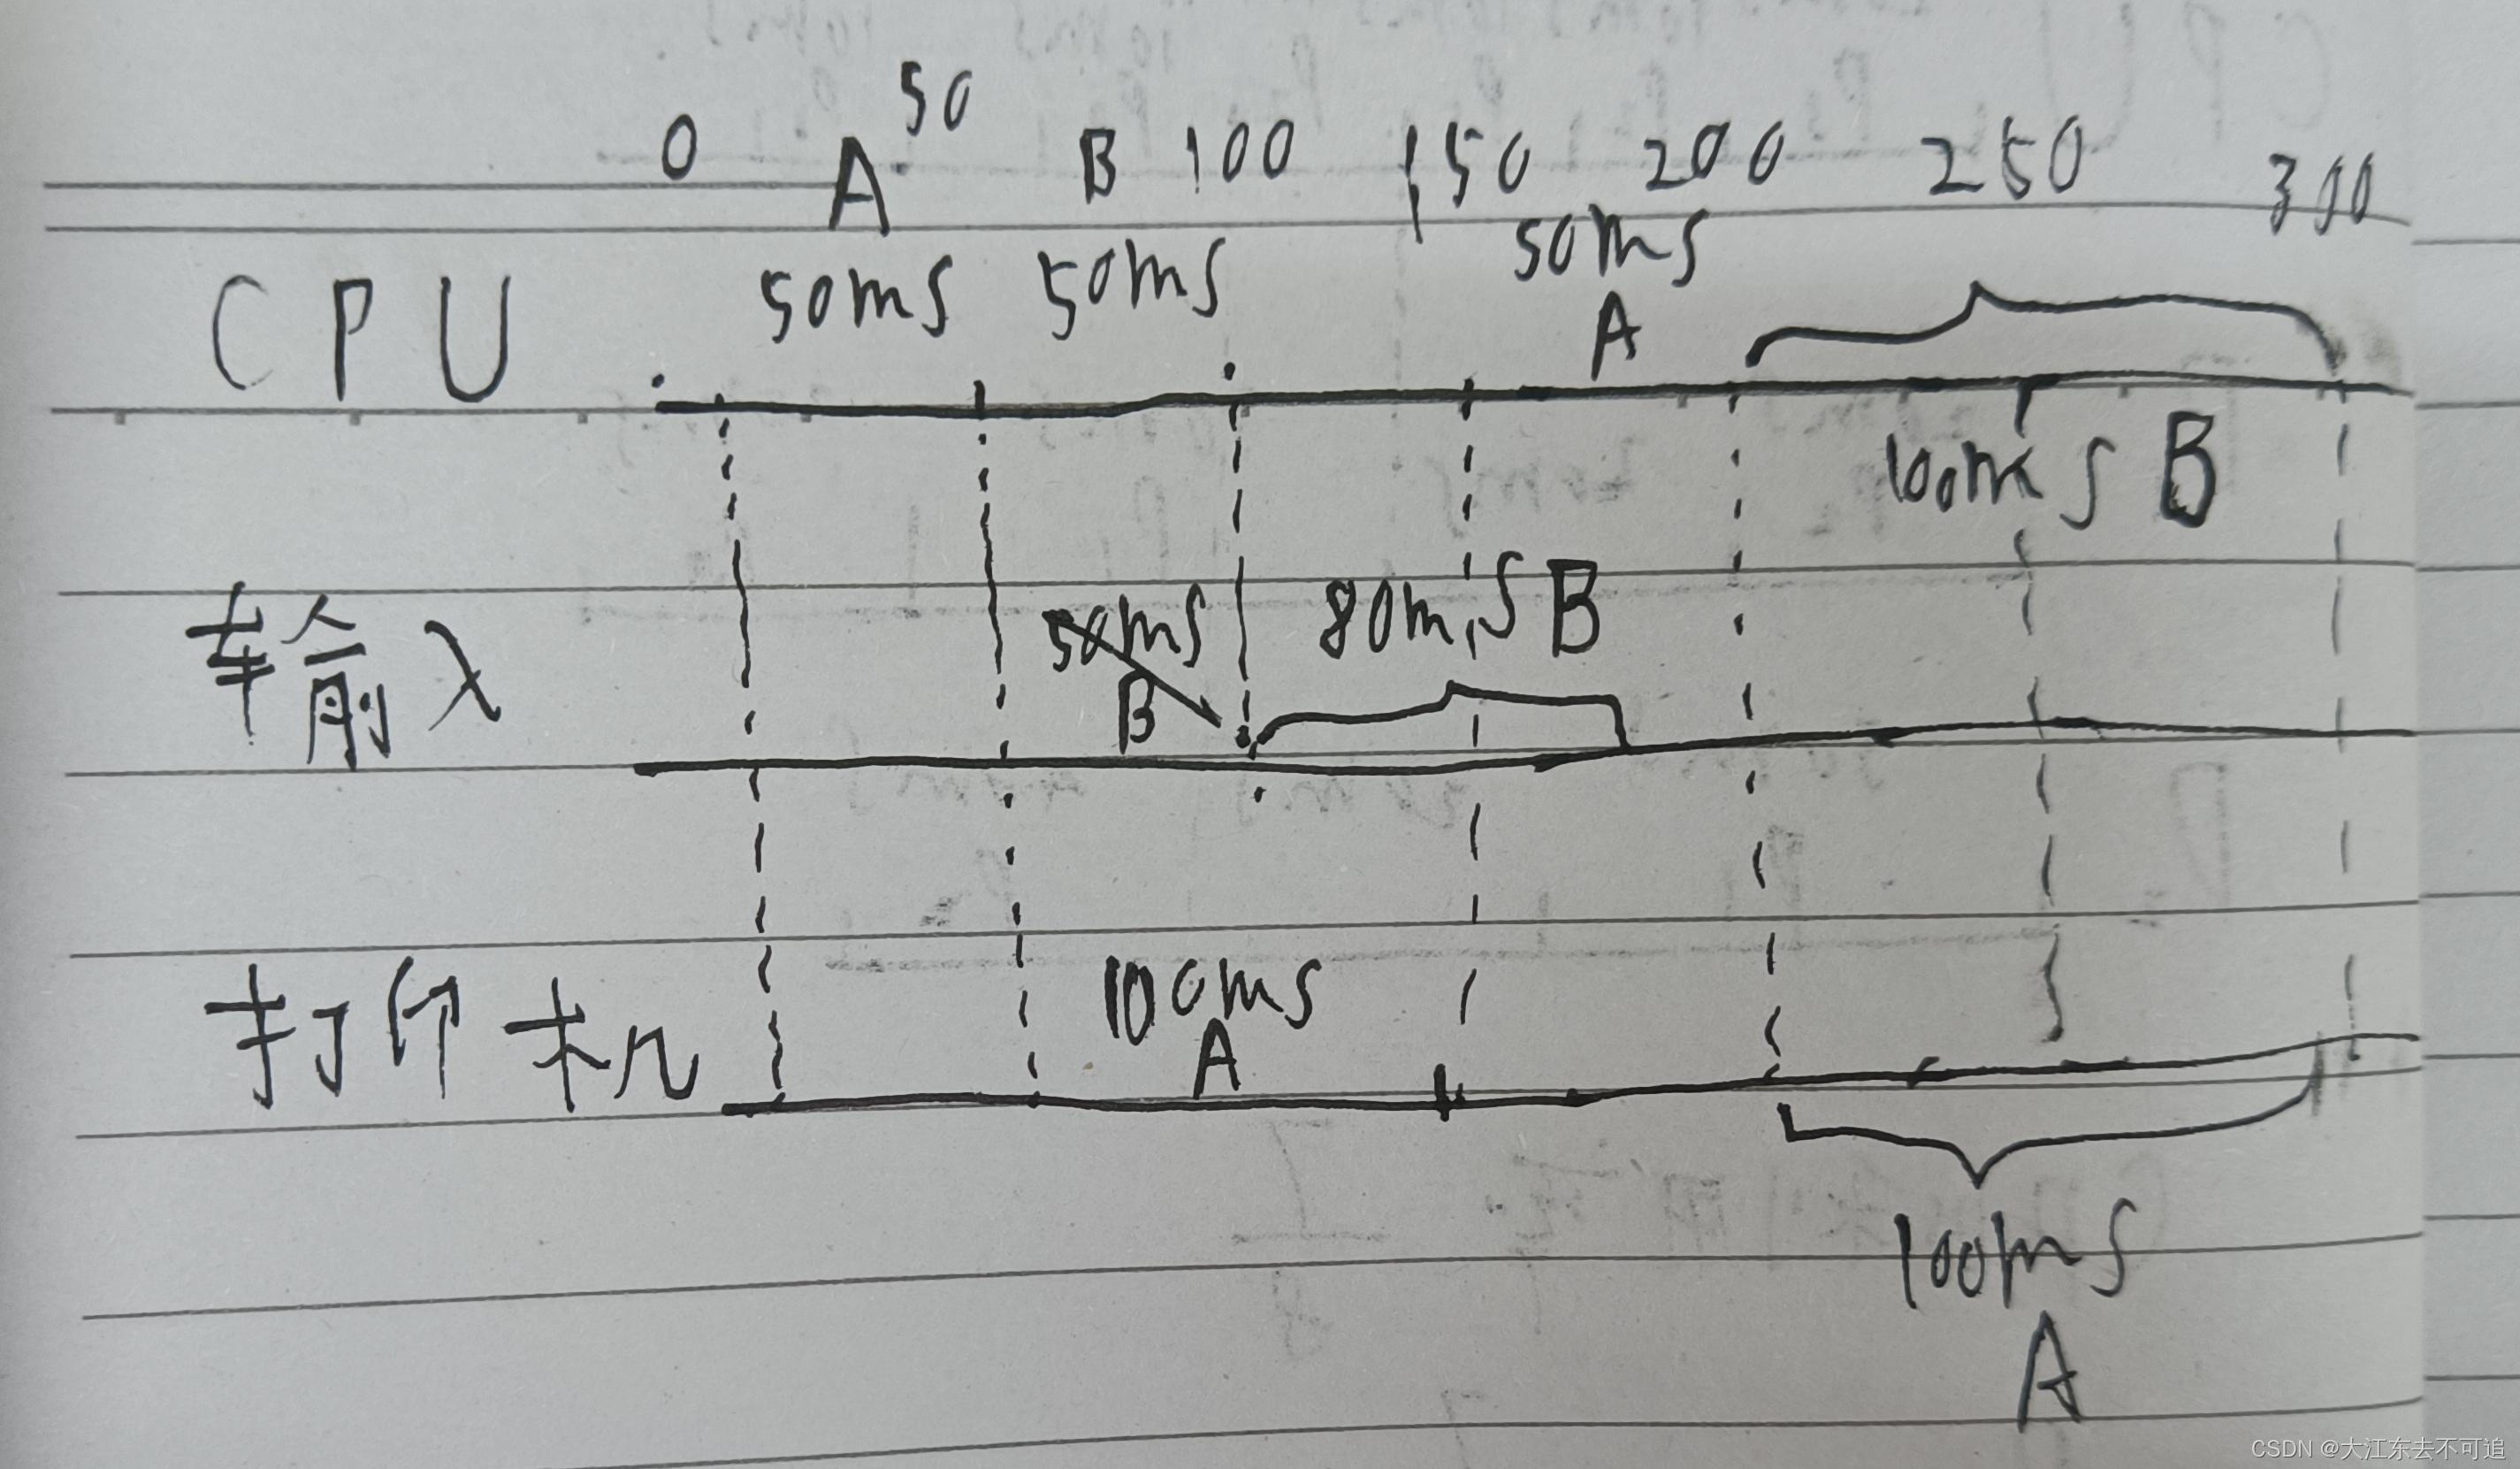 0 A 50 B 100 150 200 250 300
CPU 50ms 50ms 50ms
A
100ms B
输入 50ms 80ms B
B
打印机 100ms
A
100ms
A
CSDN @大江东去不可追